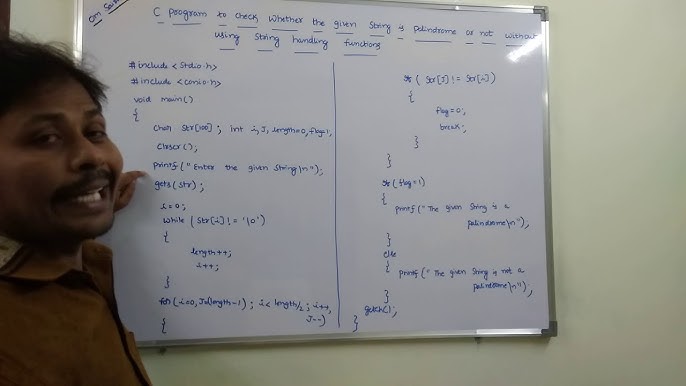 Om Sai
C program to check whether the given string is palindrome or not without
using string handling functions
#include <stdio.h>
#include <conio.h>
void main()
{
char str[100]; int i, J, length=0, flag=1;
clrscr();
printf("Enter the given string\n");
gets(str);
i=0;
while (str[i]!='\0')
{
length++;
i++;
}
for(i=0, J=(length-1); i<length/2; i++,
J--)
{
if (str[J]!=str[i])
{
flag=0;
break;
}
}
if(flag=1)
{
printf("The given string is a
palindrome\n");
}
else
{
printf("The given string is not a
palindrome\n");
}
getch();
}